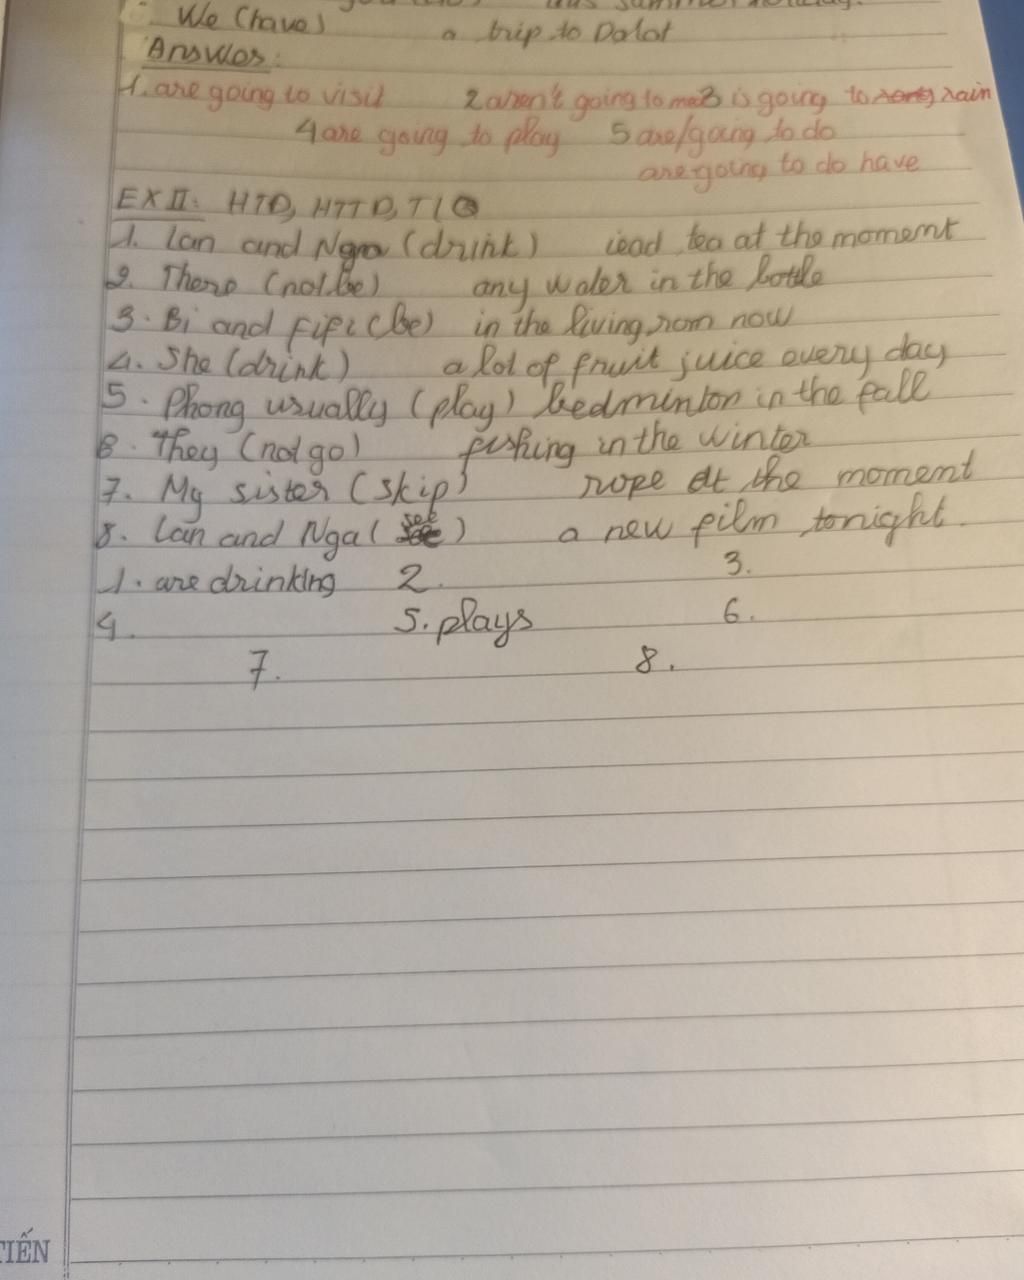 We (have) a trip to Dalat
Answer:
1. are going to visit 2 aren't going to 3 is going to rain
4 are going to play 5 are/going to do
are going to do have
EX II: HTD, HTTD, TLG
1. Lan and Nga (drink) icad tea at the moment
2. There (not.be) any water in the bottle
3. Bi and fifi (be) in the living rom now
4. She (drink) a lot of fruit juice every day
5. Phong usually (play) bedminton in the fall
6. They (not go) fishing in the winter
7. My sister (skip) rope at the moment
8. Lan and Nga (see) a new film tonight.
1. are drinking 2. 3.
4. 5. plays 6.
7. 8.
TIẾN